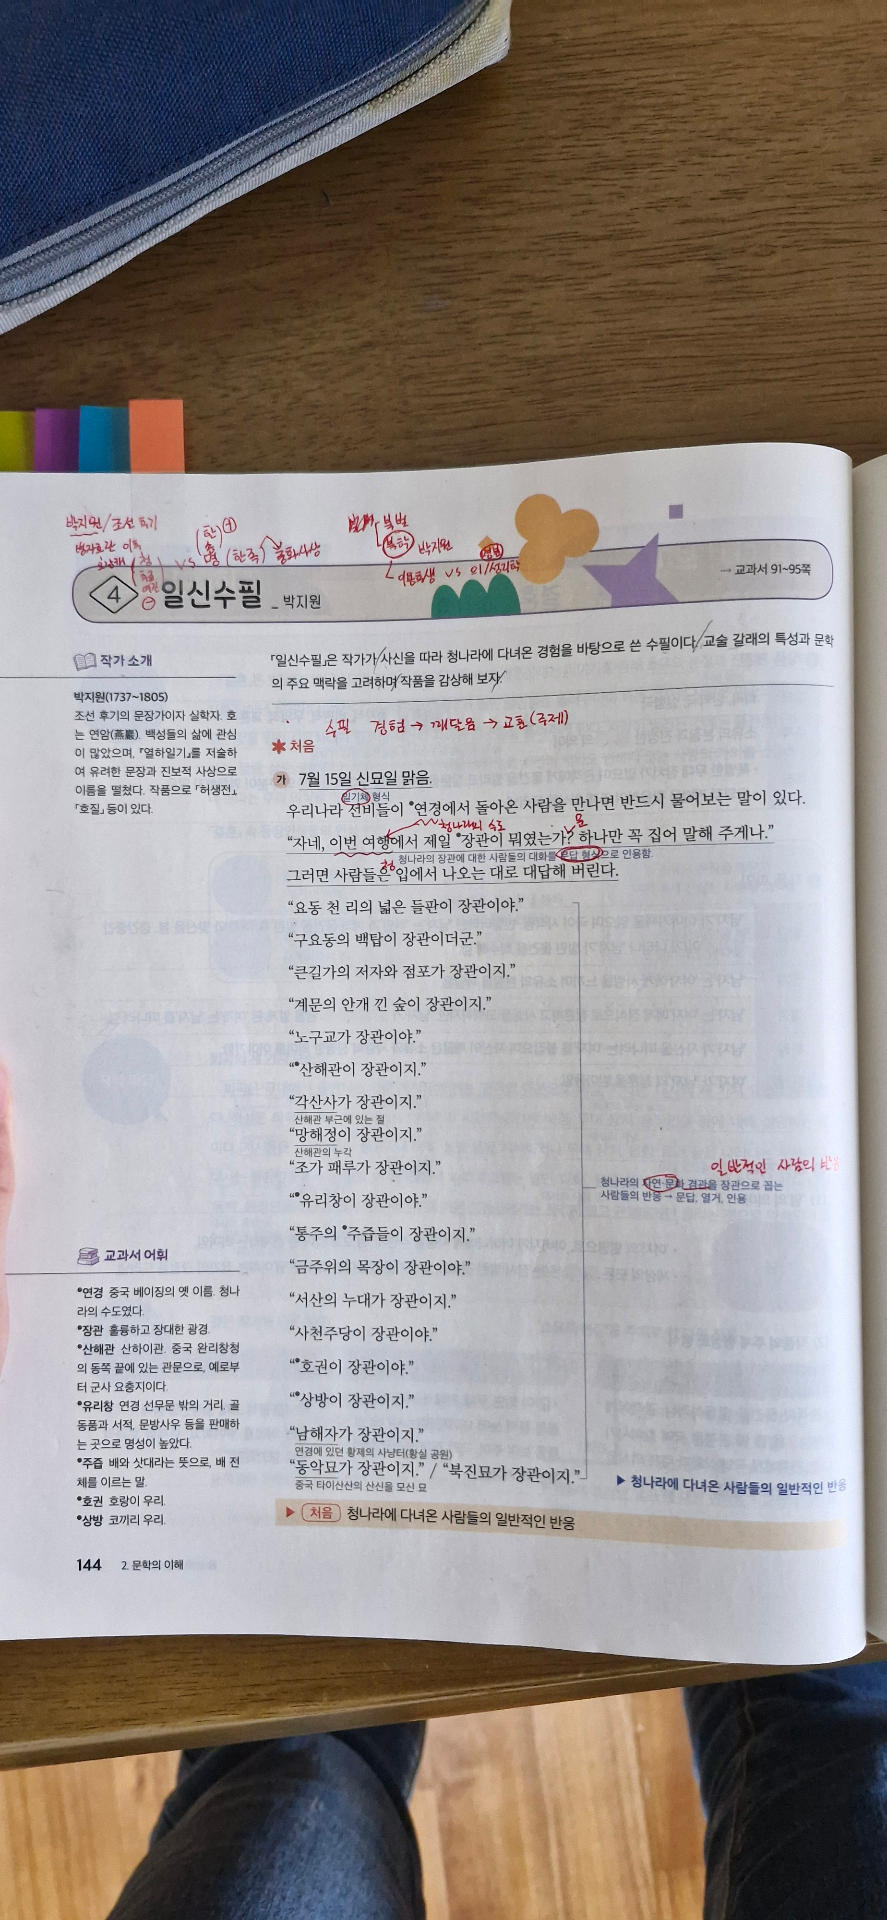 박지원/조선 후기
병자호란 이후
오랑캐
청
VS
한
송
명
(한족)
북벌
북학
박지원
이용후생 vs
4 일신수필 _ 박지원
→ 교과서 91~95쪽
작가 소개
박지원(1737~1805)
조선 후기의 문장가이자 실학자. 호
는 연암(燕巖). 백성들의 삶에 관심
이 많았으며, 『열하일기』를 저술하
여 유려한 문장과 진보적 사상으로
이름을 떨쳤다. 작품으로 「허생전」,
「호질」 등이 있다.
「일신수필」은 작가가 사신을 따라 청나라에 다녀온 경험을 바탕으로 쓴 수필이다. 교술 갈래의 특성과 문학
의 주요 맥락을 고려하며 작품을 감상해 보자.
수필 경험 → 깨달음 → 교훈(주제)
처음
가 7월 15일 신묘일 맑음.
일기체 형식
우리나라 선비들이 연경에서 돌아온 사람을 만나면 반드시 물어보는 말이 있다.
청나라의 수도
문
“자네, 이번 여행에서 제일 장관이 뭐였는가? 하나만 꼭 집어 말해 주게나.”
청나라의 장관에 대한 사람들의 대화를 문답 형식으로 인용함.
그러면 사람들은 입에서 나오는 대로 대답해 버린다.
“요동 천 리의 넓은 들판이 장관이야.”
“구요동의 백탑이 장관이더군.”
“큰길가의 저자와 점포가 장관이지.”
“계문의 안개 낀 숲이 장관이지.”
“노구교가 장관이야.”
“산해관이 장관이지.”
“각산사가 장관이지.”
산해관 부근에 있는 절
“망해정이 장관이지.”
산해관의 누각
“조가 패루가 장관이지.”
“유리창이 장관이야.”
“통주의 주즙들이 장관이지.”
“금주위의 목장이 장관이야.”
“서산의 누대가 장관이지.”
“사천주당이 장관이야.”
“호권이 장관이야.”
“상방이 장관이지.”
“남해자가 장관이지.”
연경에 있던 황제의 사냥터(황실 공원)
“동악묘가 장관이지.” / “북진묘가 장관이지.”
중국 타이산산의 산신을 모신 묘
일반적인 사람의 반응
청나라의 자연·문화 경관을 장관으로 꼽는
사람들의 반응 → 문답, 열거, 인용
▶ 청나라에 다녀온 사람들의 일반적인 반응
▶ 처음 청나라에 다녀온 사람들의 일반적인 반응
교과서 어휘
•연경 중국 베이징의 옛 이름. 청나
라의 수도였다.
•장관 훌륭하고 장대한 광경.
•산해관 산하이관. 중국 완리창청
의 동쪽 끝에 있는 관문으로, 예로부
터 군사 요충지이다.
•유리창 연경 선무문 밖의 거리. 골
동품과 서적, 문방사우 등을 판매하
는 곳으로 명성이 높았다.
•주즙 배와 삿대라는 뜻으로, 배 전
체를 이르는 말.
•호권 호랑이 우리.
•상방 코끼리 우리.
144 2. 문학의 이해